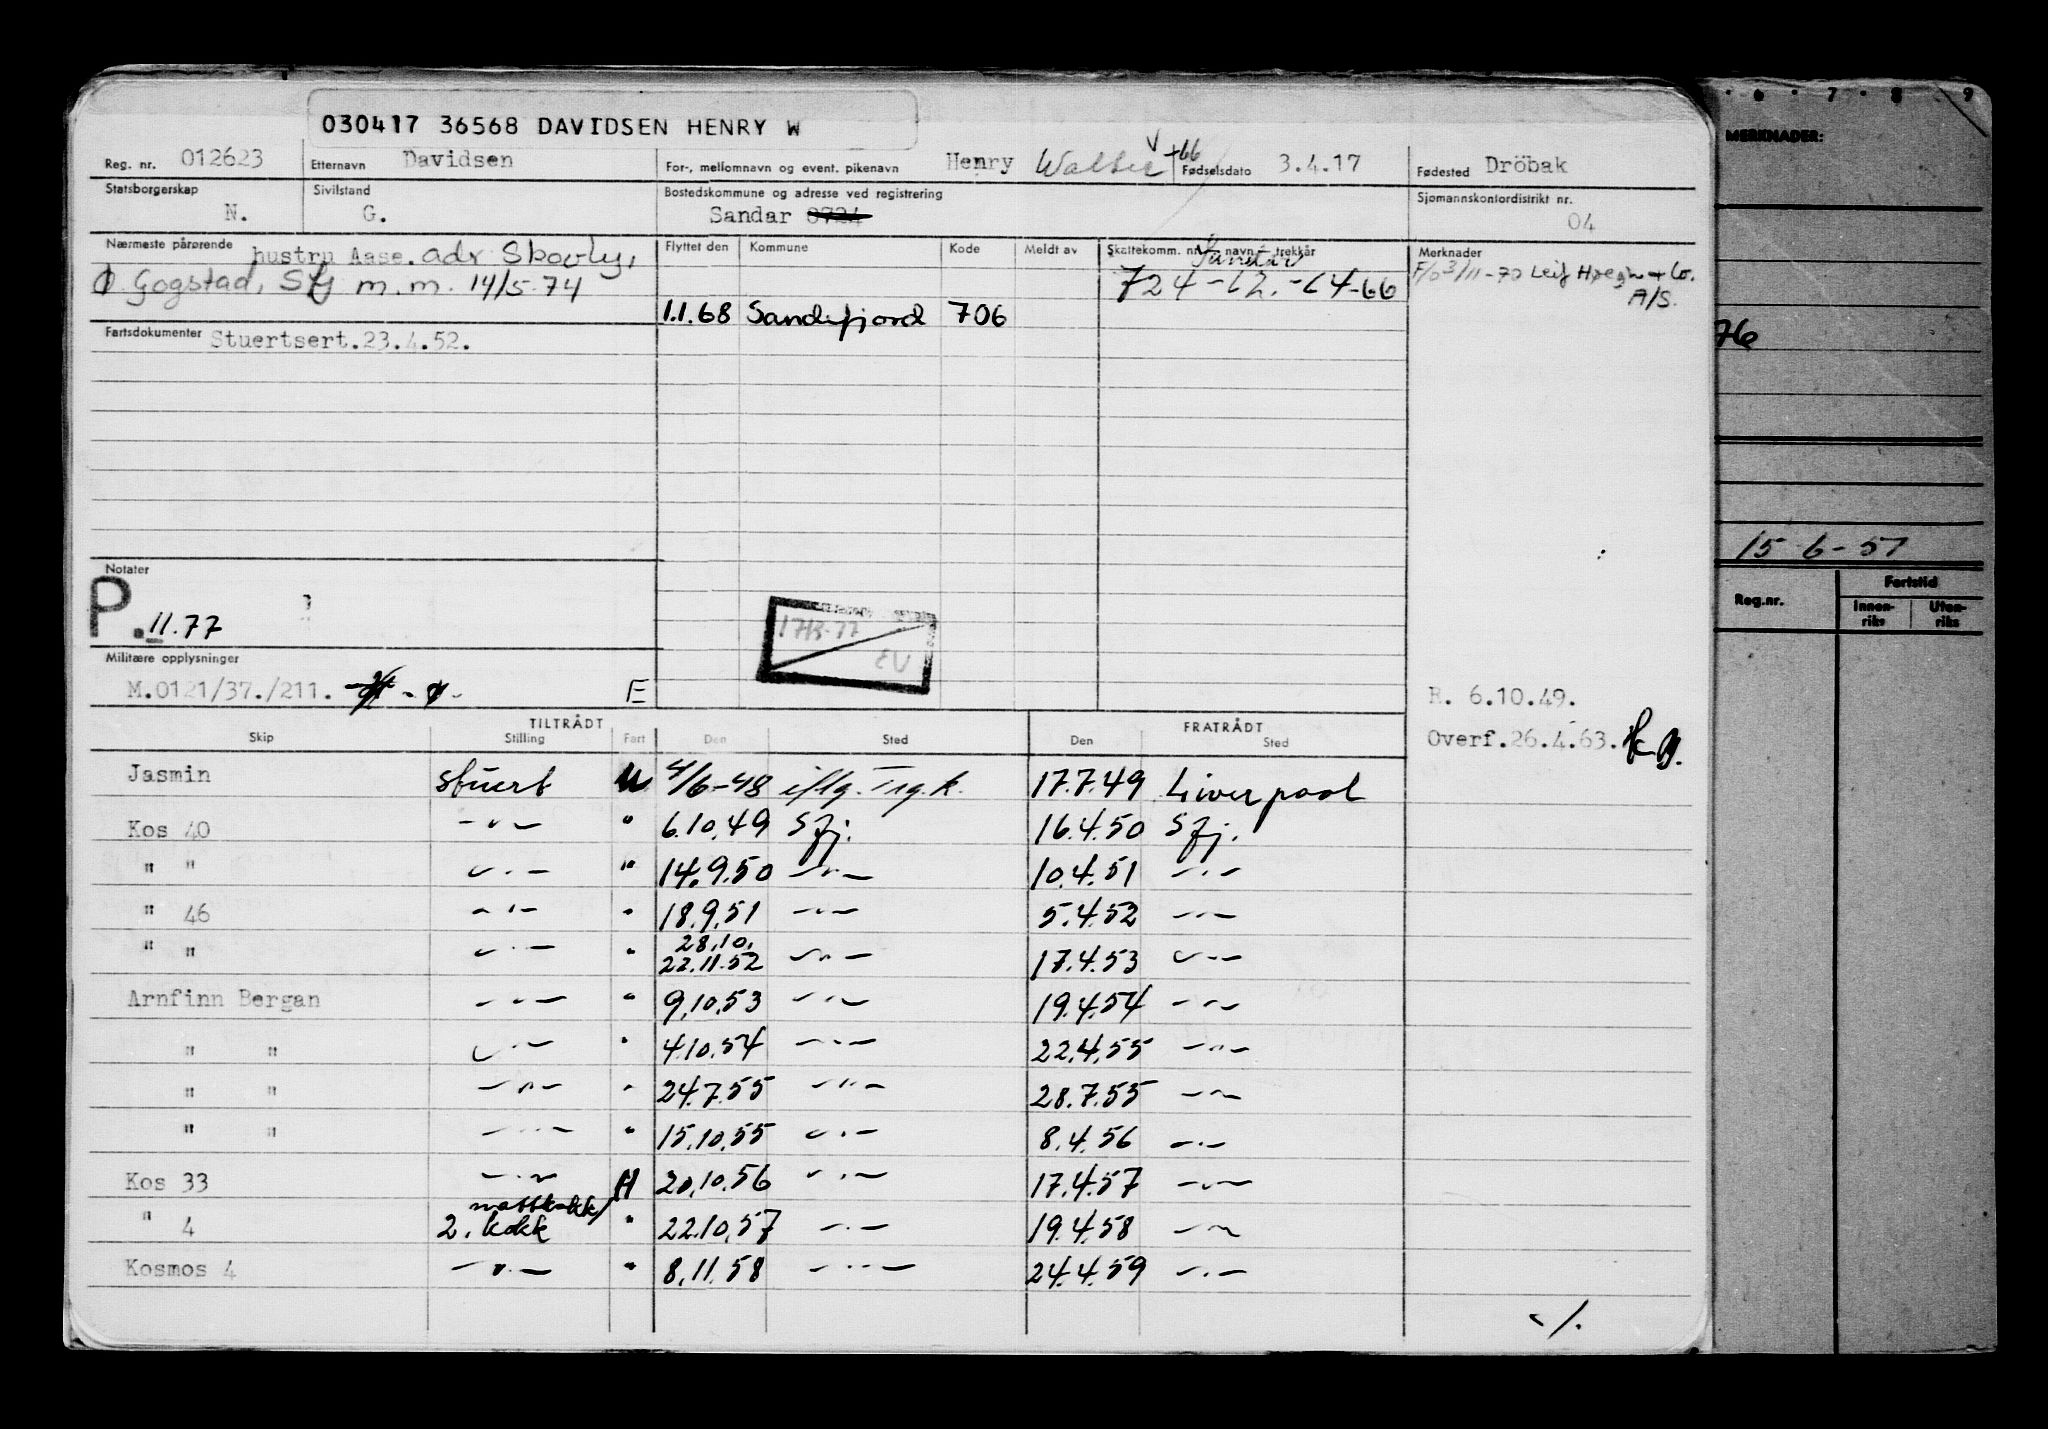 030417 36568 DAVIDSEN HENRY W
Reg. nr. 012623 Etternavn Davidsen For-, mellomnavn og event. pikenavn Henry Walter Fødselsdato 3.4.17 Fødested Dröbak
Statsborgerskap N. Sivilstand G. Bostedskommune og adresse ved registrering Sandar 0724 Sjømannskontordistrikt nr. 04
Nærmeste pårørende hustru Aase. adr Skovly, Flyttet den Kommune Kode Meldt av Skattekomm. nr., navn trekkår Merknader
Gogstad, Sfj m.m. 14/5-74 724 F/o 3/11-70 Leif Høegh + Co. A/S.
1.1.68 Sandefjord 706
Fartsdokumenter Stuertsert.23.4.52.
Notater
P. 11.77
Militære opplysninger
M.0121/37./211. E
R. 6.10.49.
Overf.26.4.63.
TILTRÅDT FRATRÅDT
Skip Stilling Fart Den Sted Den Sted
Jasmin stuert U 4/6-48 iflg. Trg.k. 17.7.49 Liverpool
Kos 40 -"- " 6.10.49 Sfj. 16.4.50 Sfj.
" " -"- " 14.9.50 -"- 10.4.51 -"-
" 46 -"- " 18.9.51 -"- 5.4.52 -"-
" " -"- " 28.10. 22.11.52 -"- 17.4.53 -"-
Arnfinn Bergan -"- " 9.10.53 -"- 19.4.54 -"-
" " -"- " 4.10.54 -"- 22.4.55 -"-
" " -"- " 24.7.55 -"- 28.7.55 -"-
" " -"- " 15.10.55 -"- 8.4.56 -"-
Kos 33 -"- H 20.10.56 -"- 17.4.57 -"-
" 4 nattkokk/ 2. kokk " 22.10.57 -"- 19.4.58 -"-
Kosmos 4 -"- " 8.11.58 -"- 24.4.59 -"-
./.
6 7 8 9
MERKNADER:
76
15-6-51
Reg.nr. Fartstid
Innenriks Utenriks